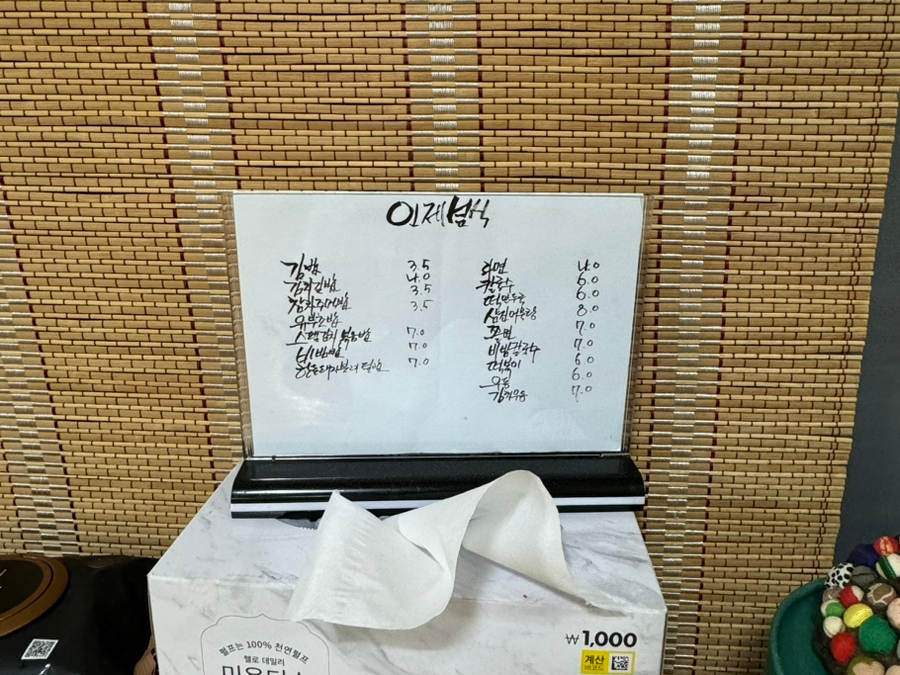 인제분식
김밥 3.5
김치김밥 4.0
참치주먹밥 3.5
유부초밥 3.5
스팸김치볶음밥 7.0
비빔밥 7.0
7.0
라면 4.0
칼국수 6.0
떡만두국 6.0
8.0
쫄면 7.0
비빔칼국수 7.0
떡볶이 6.0
우동 6.0
김치우동 7.0
펄프는 100% 천연펄프
헬로 데일리
₩1,000
계산